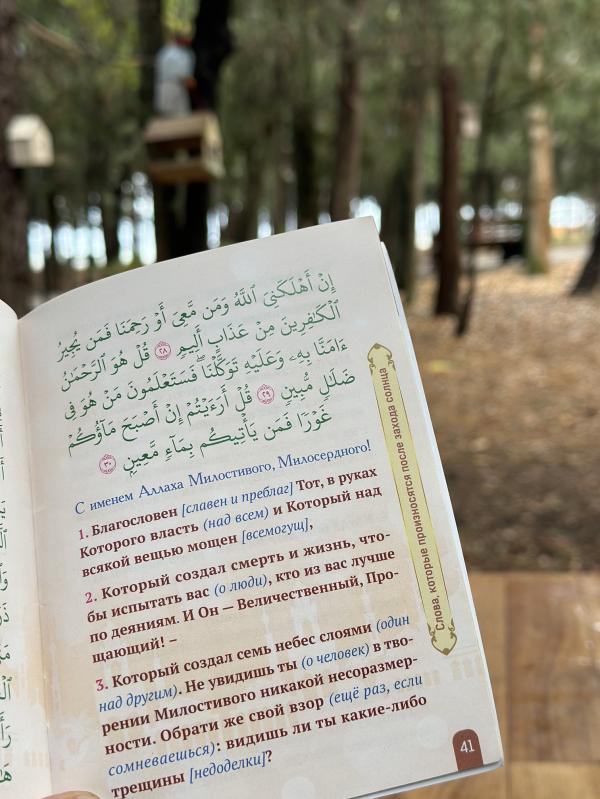 إِنْ أَهْلَكَنِيَ ٱللَّهُ وَمَن مَّعِيَ أَوْ رَحِمَنَا فَمَن يُجِيرُ
ٱلْكَٰفِرِينَ مِنْ عَذَابٍ أَلِيمٍ ٢٨ قُلْ هُوَ ٱلرَّحْمَٰنُ
ءَامَنَّا بِهِۦ وَعَلَيْهِ تَوَكَّلْنَا ۖ فَسَتَعْلَمُونَ مَنْ هُوَ فِى
ضَلَٰلٍ مُّبِينٍ ٢٩ قُلْ أَرَءَيْتُمْ إِنْ أَصْبَحَ مَآؤُكُمْ
غَوْرًا فَمَن يَأْتِيكُم بِمَآءٍ مَّعِينٍۭ ٣٠
С именем Аллаха Милостивого, Милосердного!
1. Благословен [славен и преблаг] Тот, в руках
Которого власть (над всем) и Который над
всякой вещью мощен [всемогущ],
2. Который создал смерть и жизнь, что-
бы испытать вас (о люди), кто из вас лучше
по деяниям. И Он — Величественный, Про-
щающий! –
3. Который создал семь небес слоями (один
над другим). Не увидишь ты (о человек) в тво-
рении Милостивого никакой несоразмер-
ности. Обрати же свой взор (ещё раз, если
сомневаешься): видишь ли ты какие-либо
трещины [недоделки]?
Слова, которые произносятся после захода солнца
41